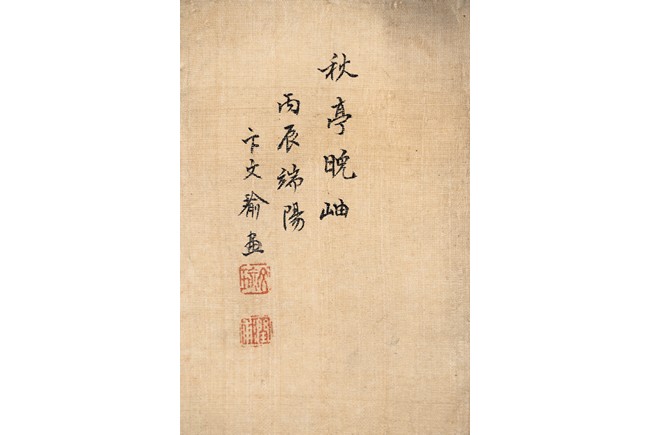 秋亭晚岫
丙辰端陽
卞文瑜畫